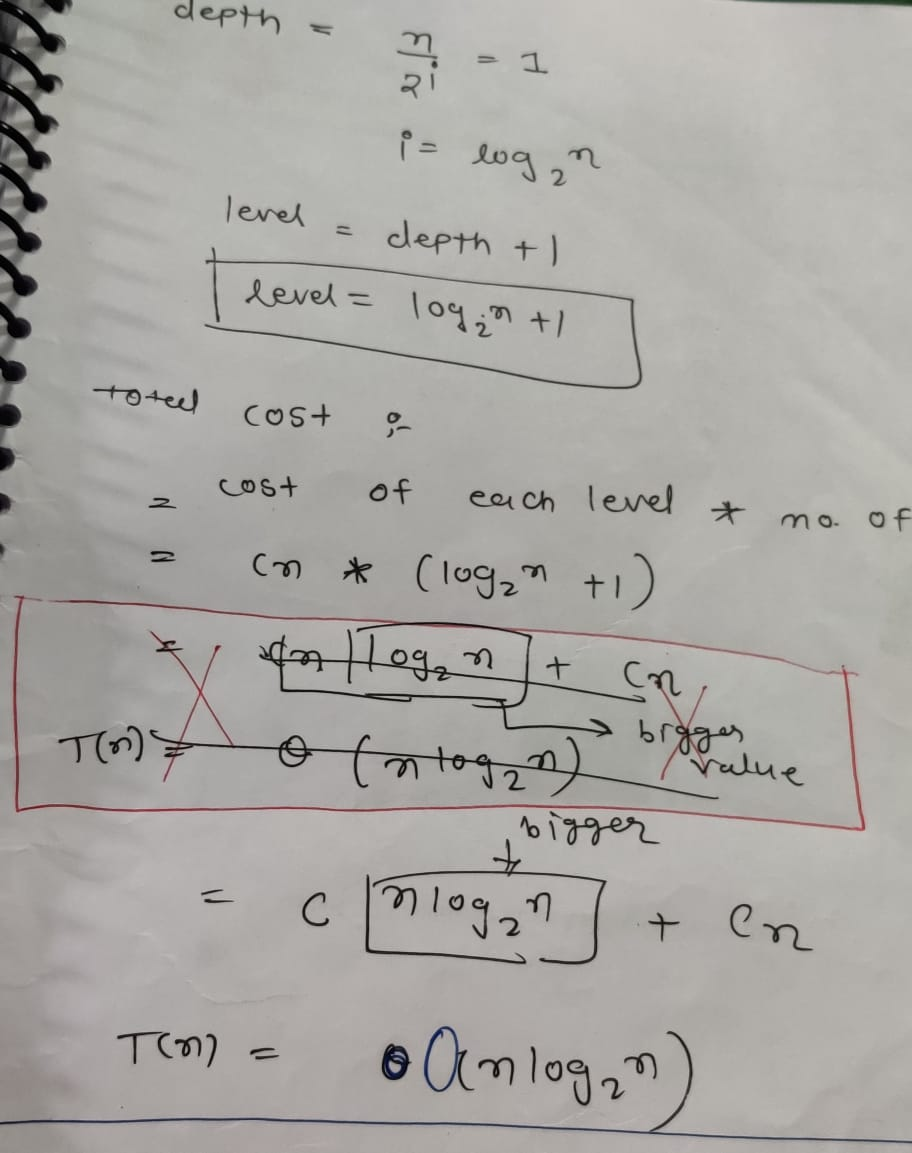 depth = n/2^i = 1
i = log₂n
level = depth + 1
level = log₂n + 1
total cost :-
= cost of each level * no. of
= cn * (log₂n + 1)
= cn log₂n + cn
bigger value
T(n) = θ (n log₂n)
bigger
= c n log₂n + cn
T(n) = O(n log₂n)